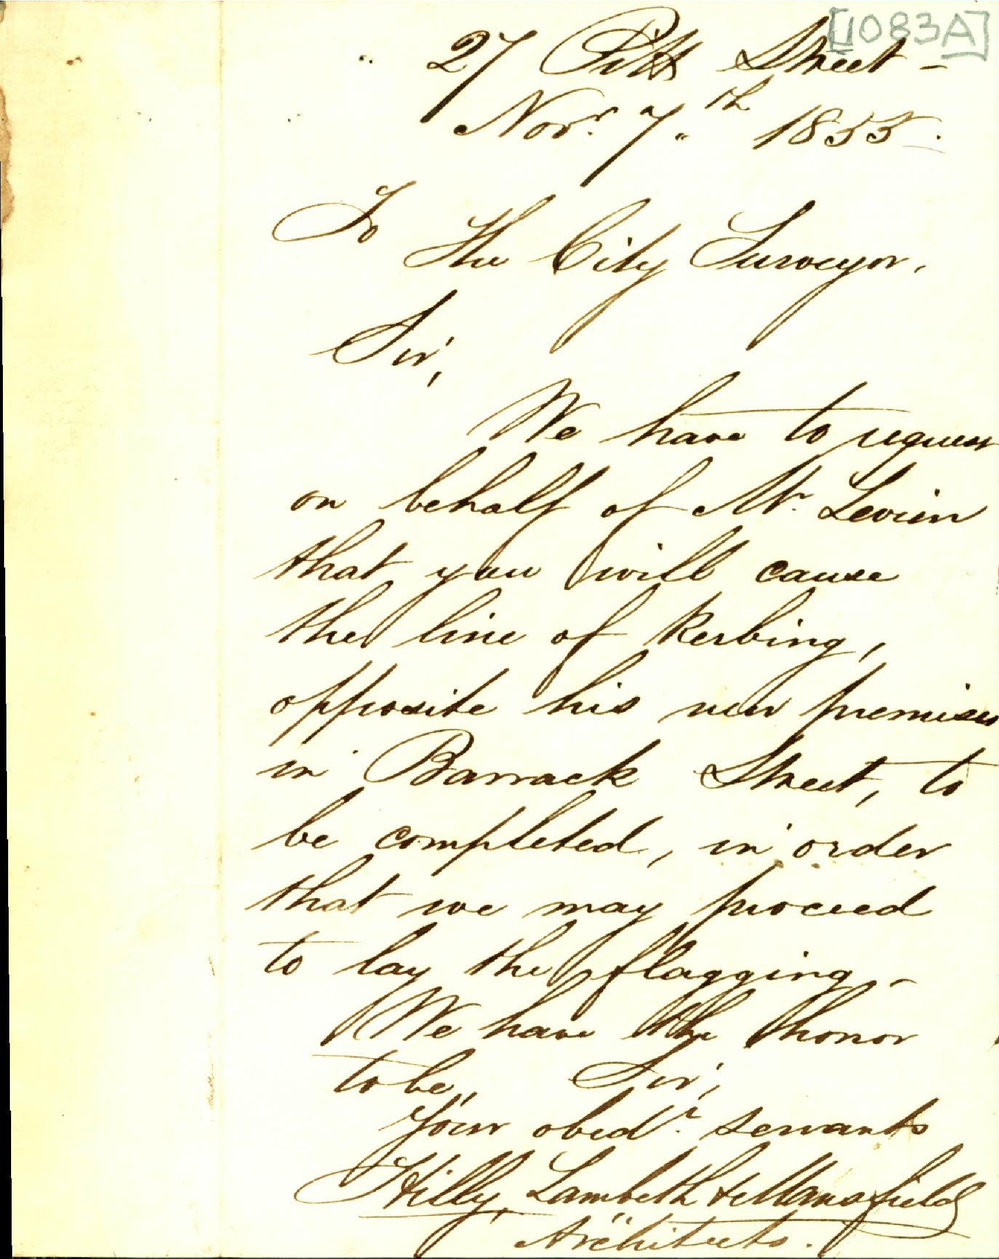 [1083A]
27 Pitt Street -
Novr. 7th 1855.
To
The City Surveyor.
Sir,
We have to request
on behalf of Mr. Levien
that you will cause
the line of Kerbing,
opposite his new premises
in Barrack Street, to
be completed, in order
that we may proceed
to lay the flagging -
We have the honor
to be, Sir,
Your obedt. servants
Hilly, Lambeth & Mansfield
Architects.